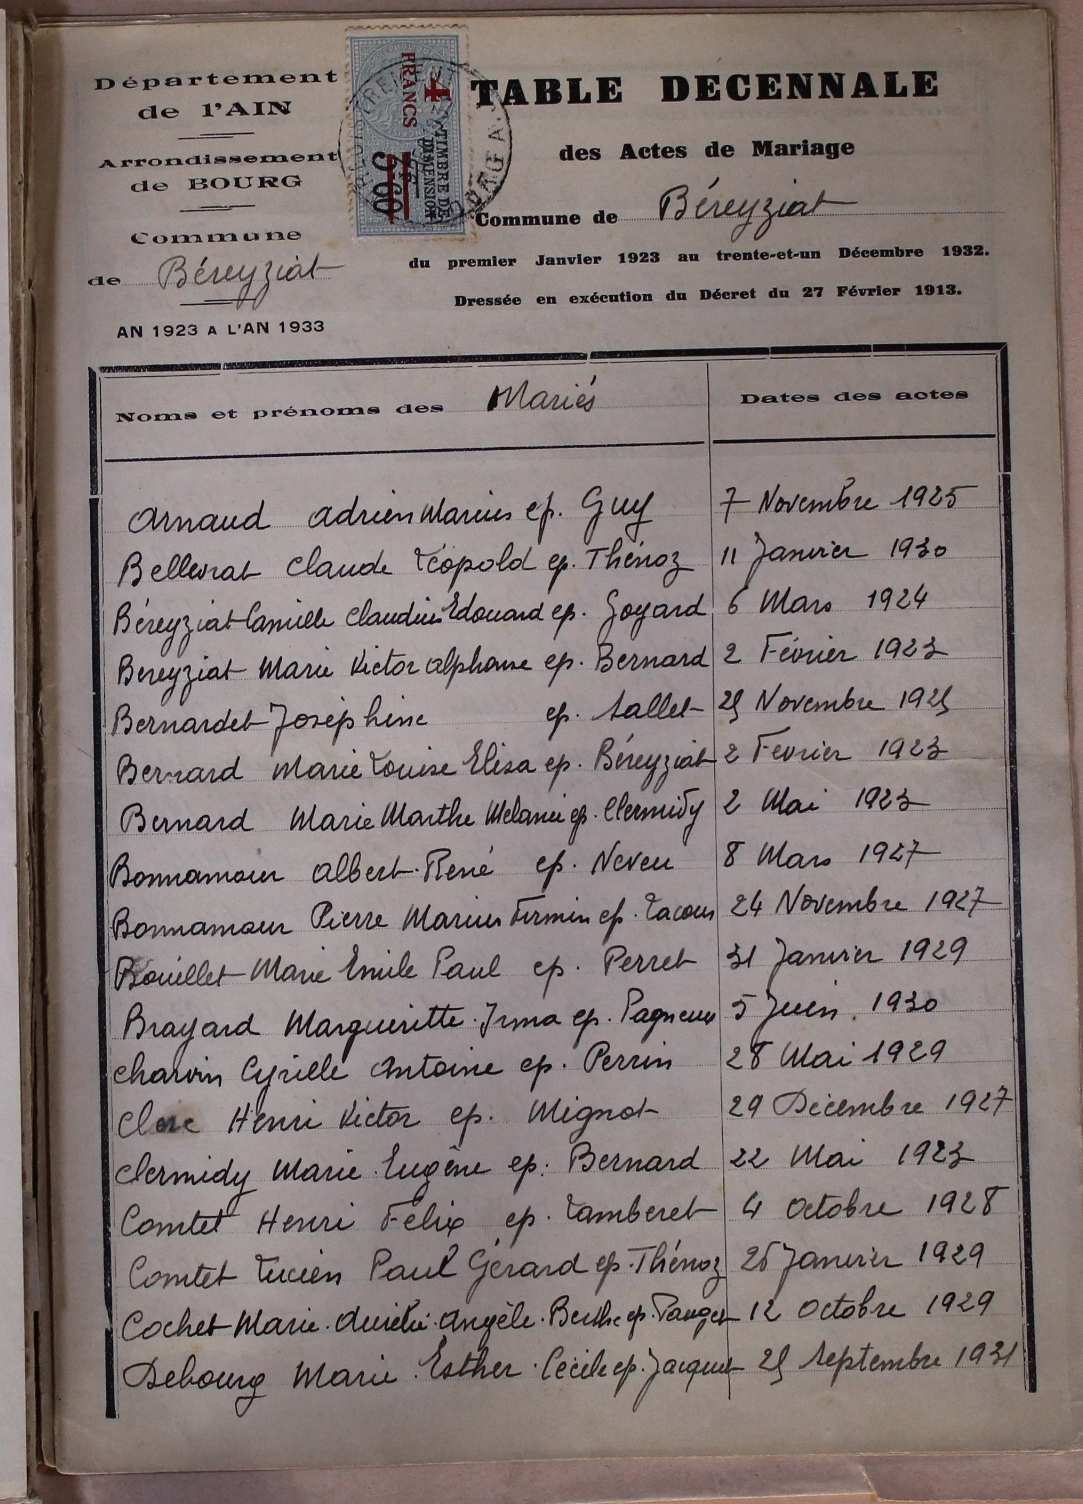 Département
de l'AIN
Arrondissement
de BOURG
Commune
de Béreyziat
AN 1923 A L'AN 1933
4 FRANCS
TIMBRE DE
DIMENSION
TABLE DECENNALE
des Actes de Mariage
Commune de Béreyziat
du premier Janvier 1923 au trente-et-un Décembre 1932.
Dressée en exécution du Décret du 27 Février 1913.
Noms et prénoms des Mariés Dates des actes
Arnaud Adrien Marius ep. Guy 7 Novembre 1925
Bellevrat Claude Léopold ep. Thénoz 11 Janvier 1930
Béreyziat Camille Claudius Edouard ep. Goyard 6 Mars 1924
Bereyziat Marie Victor Alphonse ep. Bernard 2 Février 1923
Bernardet Joséphine ep. Sallet 25 Novembre 1925
Bernard Marie Louise Elisa ep. Béreyziat 2 Fevrier 1923
Bernard Marie Marthe Melanie ep. Clermidy 2 Mai 1923
Bonnamour Albert René ep. Neveu 8 Mars 1927
Bonnamour Pierre Marius Firmin ep. Lacour 24 Novembre 1927
Bouillet Marie Emile Paul ep. Perret 31 Janvier 1929
Brayard Margueritte Irma ep. Pagneux 5 Juin 1930
Charvin Cyrille Antoine ep. Perrin 28 Mai 1929
Clerc Henri Victor ep. Mignot 29 Décembre 1927
Clermidy Marie Eugène ep. Bernard 22 Mai 1923
Comtet Henri Félix ep. Lamberet 4 Octobre 1928
Comtet Lucien Paul Gérard ep. Thénoz 26 Janvier 1929
Cochet Marie Aurélie Angèle Berthe ep. Pauget 12 Octobre 1929
Debourg Marie Esther Cécile ep. Jacquet 25 Septembre 1931